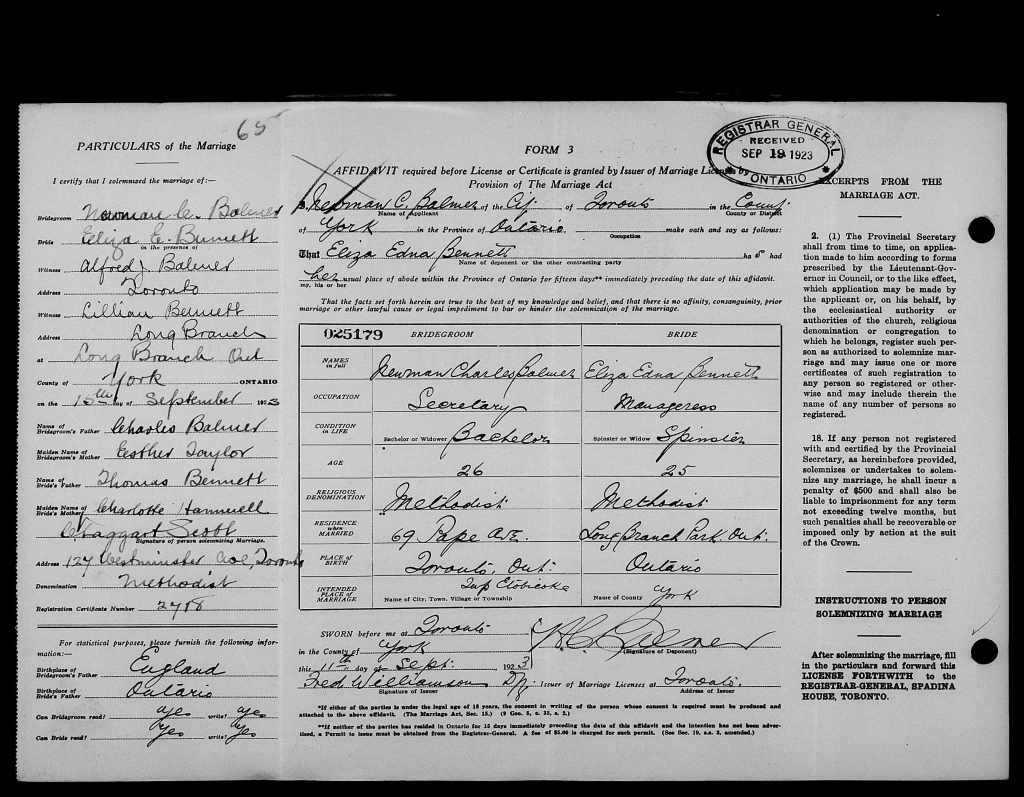 65
PARTICULARS of the Marriage
I certify that I solemnized the marriage of:—
Bridegroom Newman C. Balmer
Bride Eliza E. Bennett
in the presence of
Witness Alfred J Balmer
Address Toronto
Witness Lillian Bennett
Address Long Branch
at Long Branch Ont
County of York ONTARIO
on the 15th day of September 1923
Name of Bridegroom's Father Charles Balmer
Maiden Name of Bridegroom's Mother Esther Taylor
Name of Bride's Father Thomas Bennett
Maiden Name of Bride's Mother Charlotte Hammell
C Taggart Scott
Signature of person solemnizing Marriage.
Address 127 Westminster Ave, Toronto
Denomination Methodist
Registration Certificate Number 2718
For statistical purposes, please furnish the following information:—
Birthplace of Bridegroom's Father England
Birthplace of Bride's Father Ontario
Can Bridegroom read? yes write? yes
Can Bride read? Yes write? Yes
FORM 3
AFFIDAVIT required before License or Certificate is granted by Issuer of Marriage Licenses by
Provision of The Marriage Act
Newman C. Balmer of the City of Toronto in the County
Name of Applicant County or District
of York in the Province of Ontario make oath and say as follows:
Occupation
That Eliza Edna Bennett has had
Name of deponent or the other contracting party
her usual place of abode within the Province of Ontario for fifteen days** immediately preceding the date of this affidavit.
my, his or her
That the facts set forth herein are true to the best of my knowledge and belief, and that there is no affinity, consanguinity, prior
marriage or other lawful cause or legal impediment to bar or hinder the solemnization of the marriage.
025179 BRIDEGROOM BRIDE
NAMES in full Newman Charles Balmer Eliza Edna Bennett
OCCUPATION Secretary Manageress
CONDITION in LIFE Bachelor or Widower Bachelor Spinster or Widow Spinster
AGE 26 25
RELIGIOUS DENOMINATION Methodist Methodist
RESIDENCE when MARRIED 69 Pape Ave. Long Branch Park Ont.
PLACE OF BIRTH Toronto, Ont. Ontario
INTENDED PLACE OF MARRIAGE Name of City, Town, Village or Township Twp Etobicoke Name of County York
SWORN before me at Toronto
in the County of York
(Signature of Deponent)
this 11th day of Sept. 1923
Fred Williamson Issuer of Marriage Licenses at Toronto.
Signature of Issuer Address of Issuer
*If either of the parties is under the legal age of 18 years, the consent in writing of the person whose consent is required must be produced and
attached to the above affidavit. (The Marriage Act, Sec. 15.) (9 Geo. 5, c. 35, s. 2.)
**If neither of the parties has resided in Ontario for 15 days immediately preceding the date of this affidavit and the intention has not been advertised,
a Permit to issue must be obtained from the Registrar-General. A fee of $5.00 is charged for such permit. (See Sec. 19, s.s. 2, amended.)
REGISTRAR GENERAL
RECEIVED
SEP 19 1923
ONTARIO
EXCERPTS FROM THE
MARRIAGE ACT.
2. (1) The Provincial Secretary
shall from time to time, on applica-
tion made to him according to forms
prescribed by the Lieutenant-Gov-
ernor in Council, or to the like effect,
which application may be made by
the applicant or, on his behalf, by
the ecclesiastical authority or
authorities of the church, religious
denomination or congregation to
which he belongs, register such per-
son as authorized to solemnize mar-
riage and may issue one or more
certificates of such registration to
any person so registered or other-
wise and may include therein the
name of any number of persons so
registered.
18. If any person not registered
with and certified by the Provincial
Secretary, as hereinbefore provided,
solemnizes or undertakes to solem-
nize any marriage, he shall incur a
penalty of $500 and shall also be
liable to imprisonment for any term
not exceeding twelve months, but
such penalties shall be recoverable or
imposed only by action at the suit
of the Crown.
INSTRUCTIONS TO PERSON
SOLEMNIZING MARRIAGE
After solemnizing the marriage, fill
in the particulars and forward this
LICENSE FORTHWITH to the
REGISTRAR-GENERAL, SPADINA
HOUSE, TORONTO.